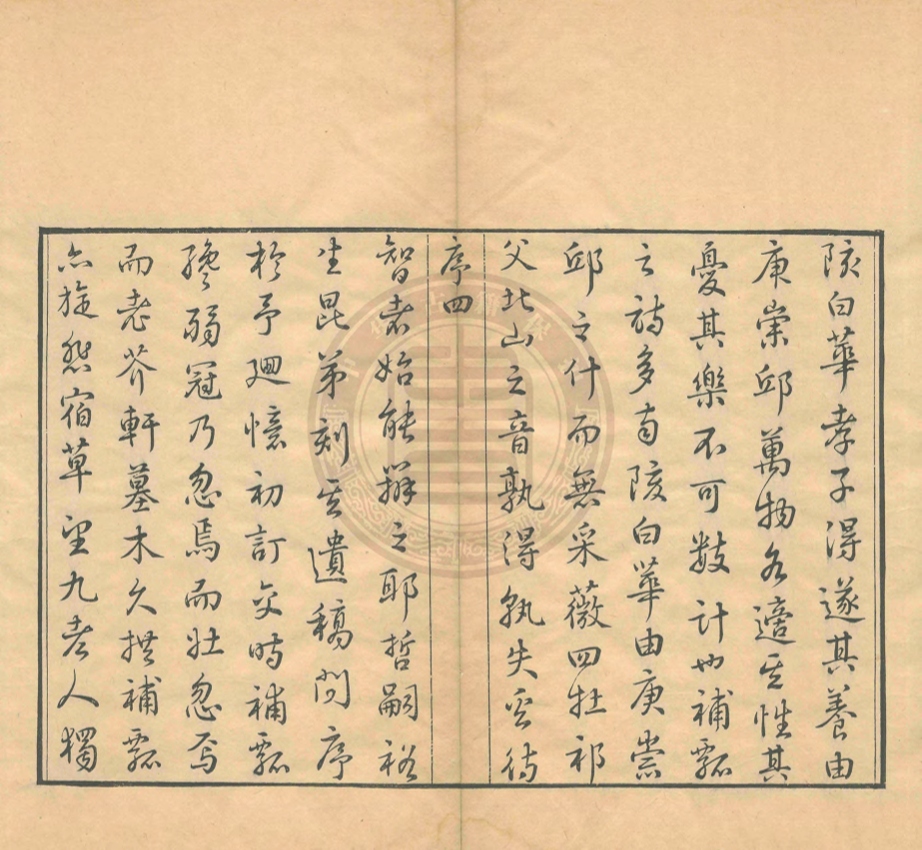 陔白華孝子得遂其養由
庚崇邱萬物各適其性其
憂其樂不可數計也補瓢
之詩多南陔白華由庚崇
邱之什而無采薇四牡祁
父北山之音孰得孰失豈待
序四
智者始能辨之耶哲嗣裕
生昆弟刻其遺稿問序
於予迴憶初訂交時補瓢
纔弱冠乃忽焉而壯忽焉
而老芥軒墓木久拱補瓢
亦旋悲宿草望九老人獨